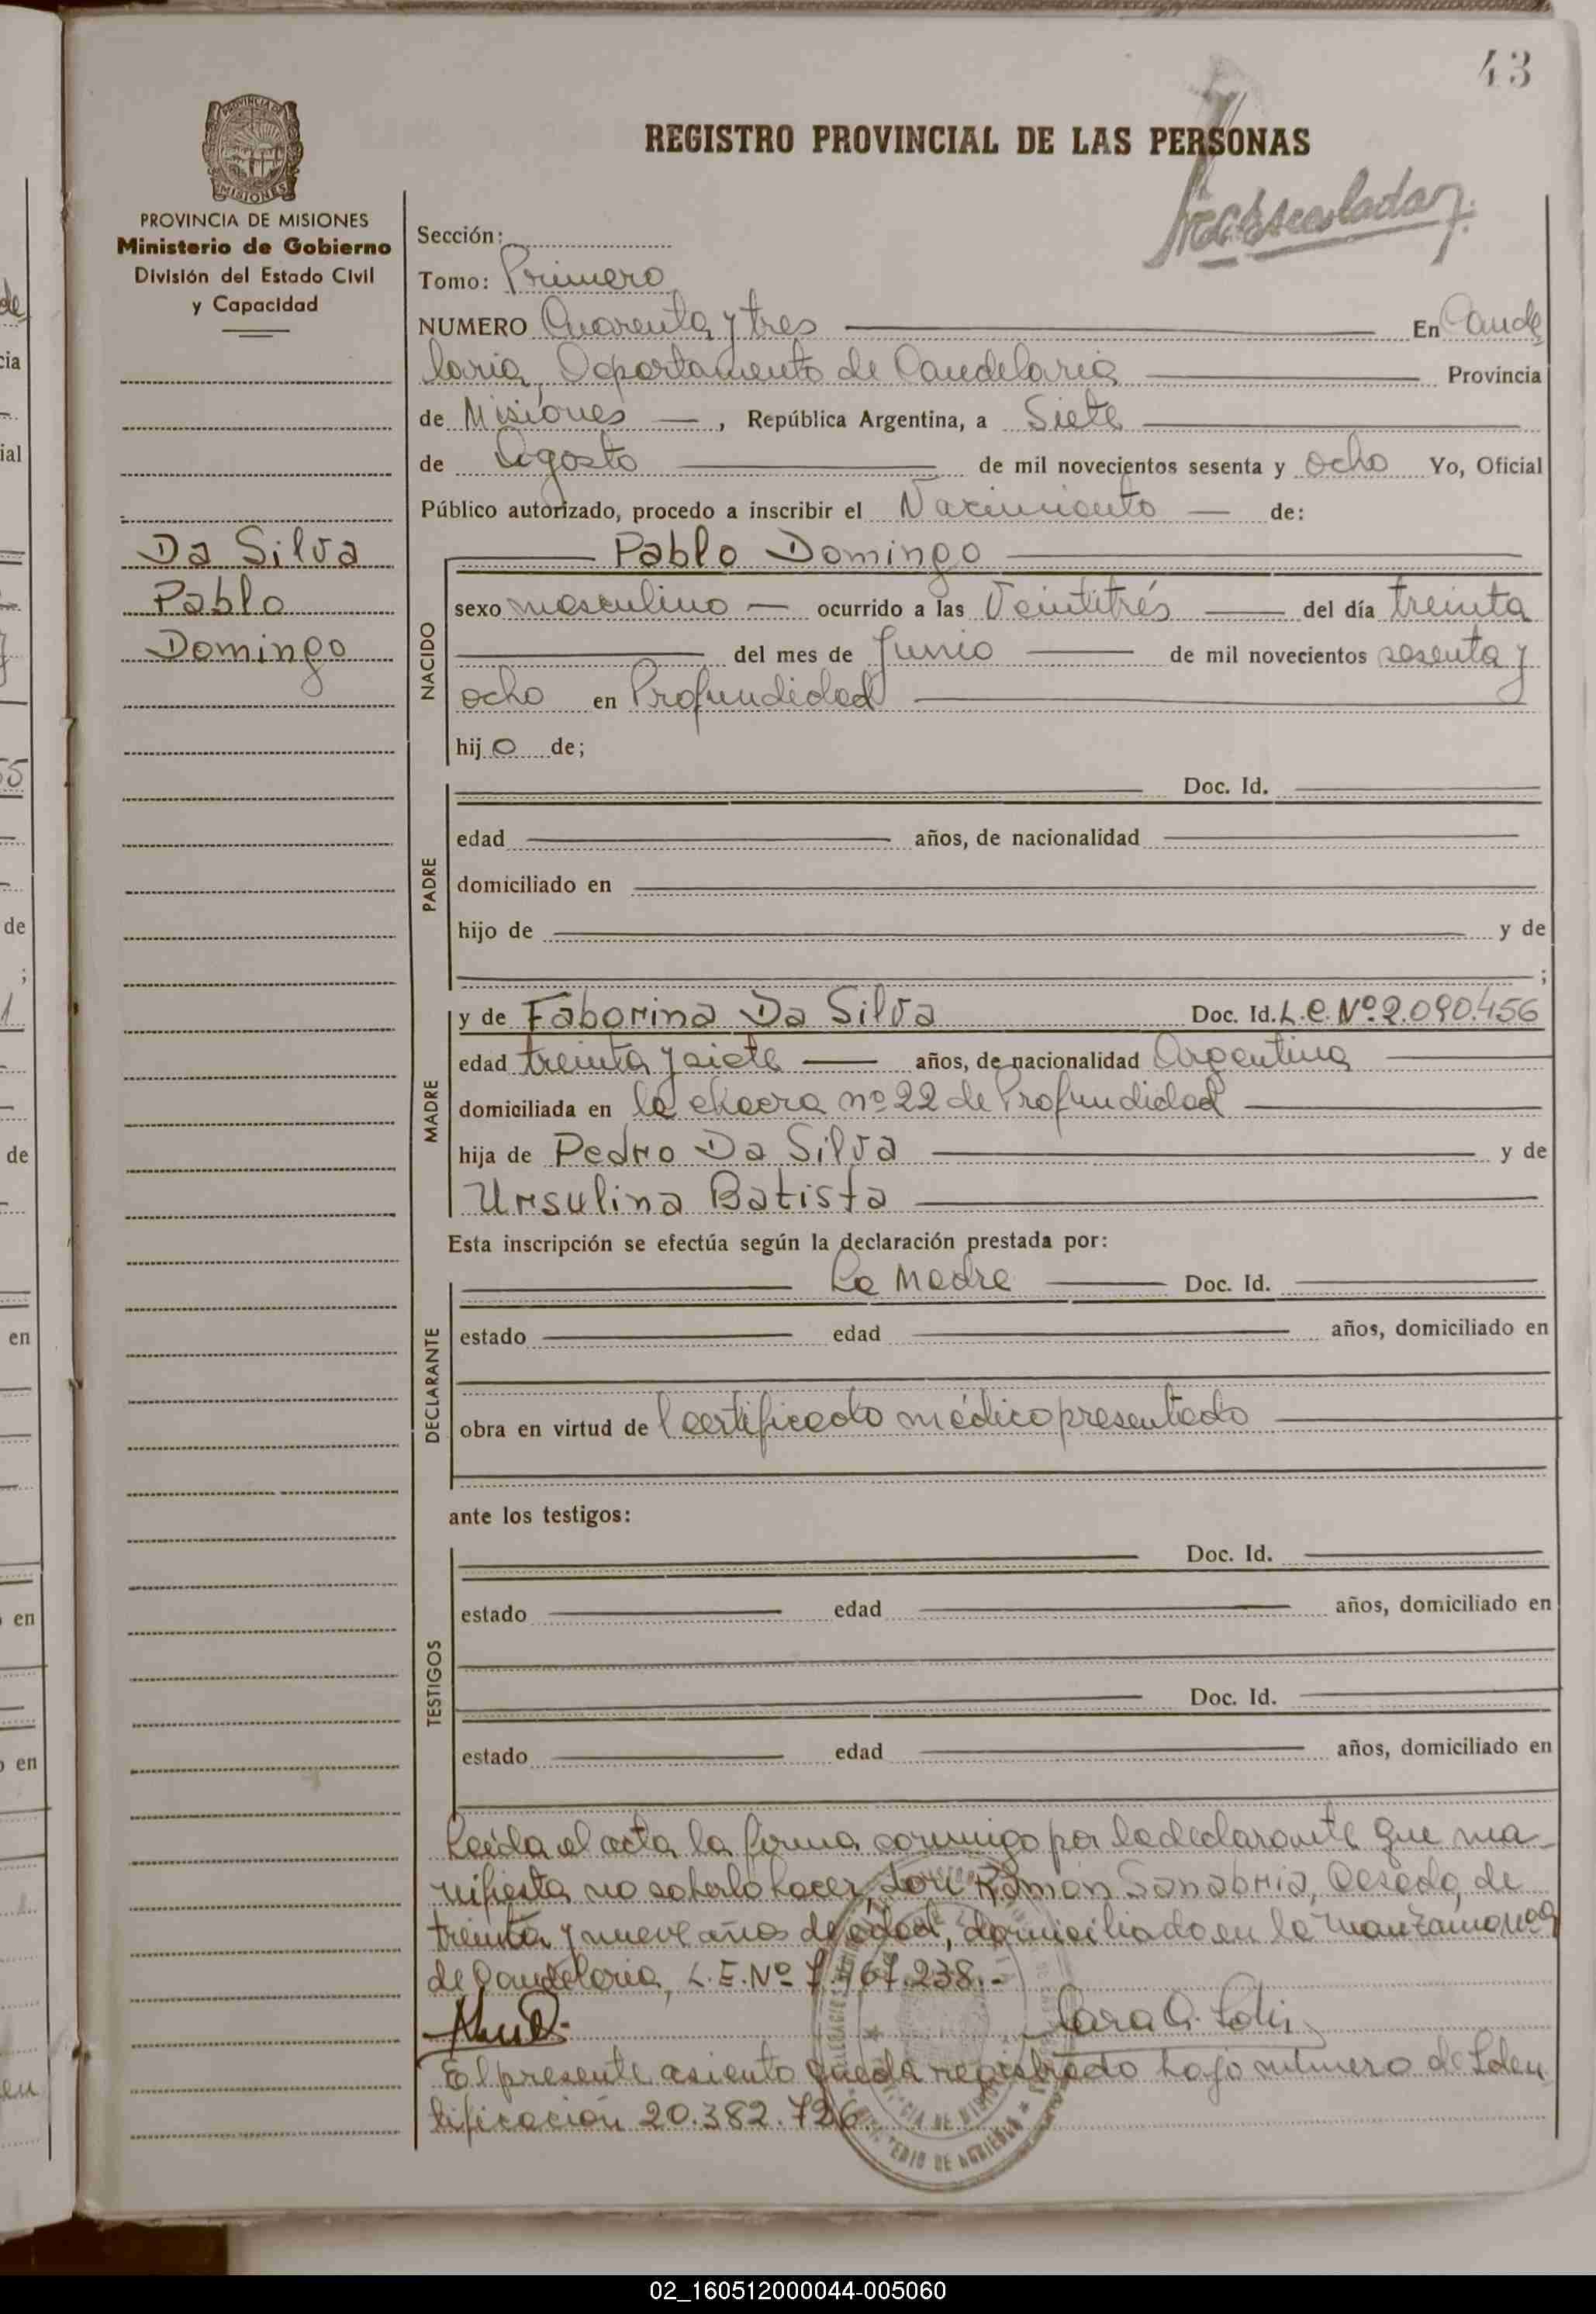 43
REGISTRO PROVINCIAL DE LAS PERSONAS
PROVINCIA DE MISIONES
Ministerio de Gobierno
División del Estado Civil
y Capacidad
Da Silva
Pablo
Domingo
Sección:
Tomo: Primero
NUMERO Cuarenta y tres En Cande
laria, Departamento de Candelaria Provincia
de Misiones , República Argentina, a Siete
de Agosto de mil novecientos sesenta y ocho Yo, Oficial
Público autorizado, procedo a inscribir el Nacimiento de:
NACIDO
Pablo Domingo
sexo masculino ocurrido a las Veintitrés del día treinta
del mes de Junio de mil novecientos sesenta y
ocho en Profundidad
hijo de;
PADRE
Doc. Id.
edad años, de nacionalidad
domiciliado en
hijo de y de
;
MADRE
y de Faborina Da Silva Doc. Id. L.C. Nº 2.090.456
edad treinta y siete años, de nacionalidad Argentina
domiciliada en la chacra nº 22 de Profundidad
hija de Pedro Da Silva y de
Ursulina Batista
Esta inscripción se efectúa según la declaración prestada por:
DECLARANTE
La Madre Doc. Id.
estado edad años, domiciliado en
obra en virtud de l certificado médico presentado
ante los testigos:
TESTIGOS
Doc. Id.
estado edad años, domiciliado en
Doc. Id.
estado edad años, domiciliado en
Leída el acta la firma conmigo por la declarante que ma-
nifiesta no saberlo hacer, Don Ramón Sanabria, Casado, de
treinta y nueve años de edad, domiciliado en la manzana nº
de Candelaria, L.E. Nº 7.167.238.-
Sara
El presente asiento queda registrado bajo número de Iden
tificación 20.382.726.
02_160512000044-005060